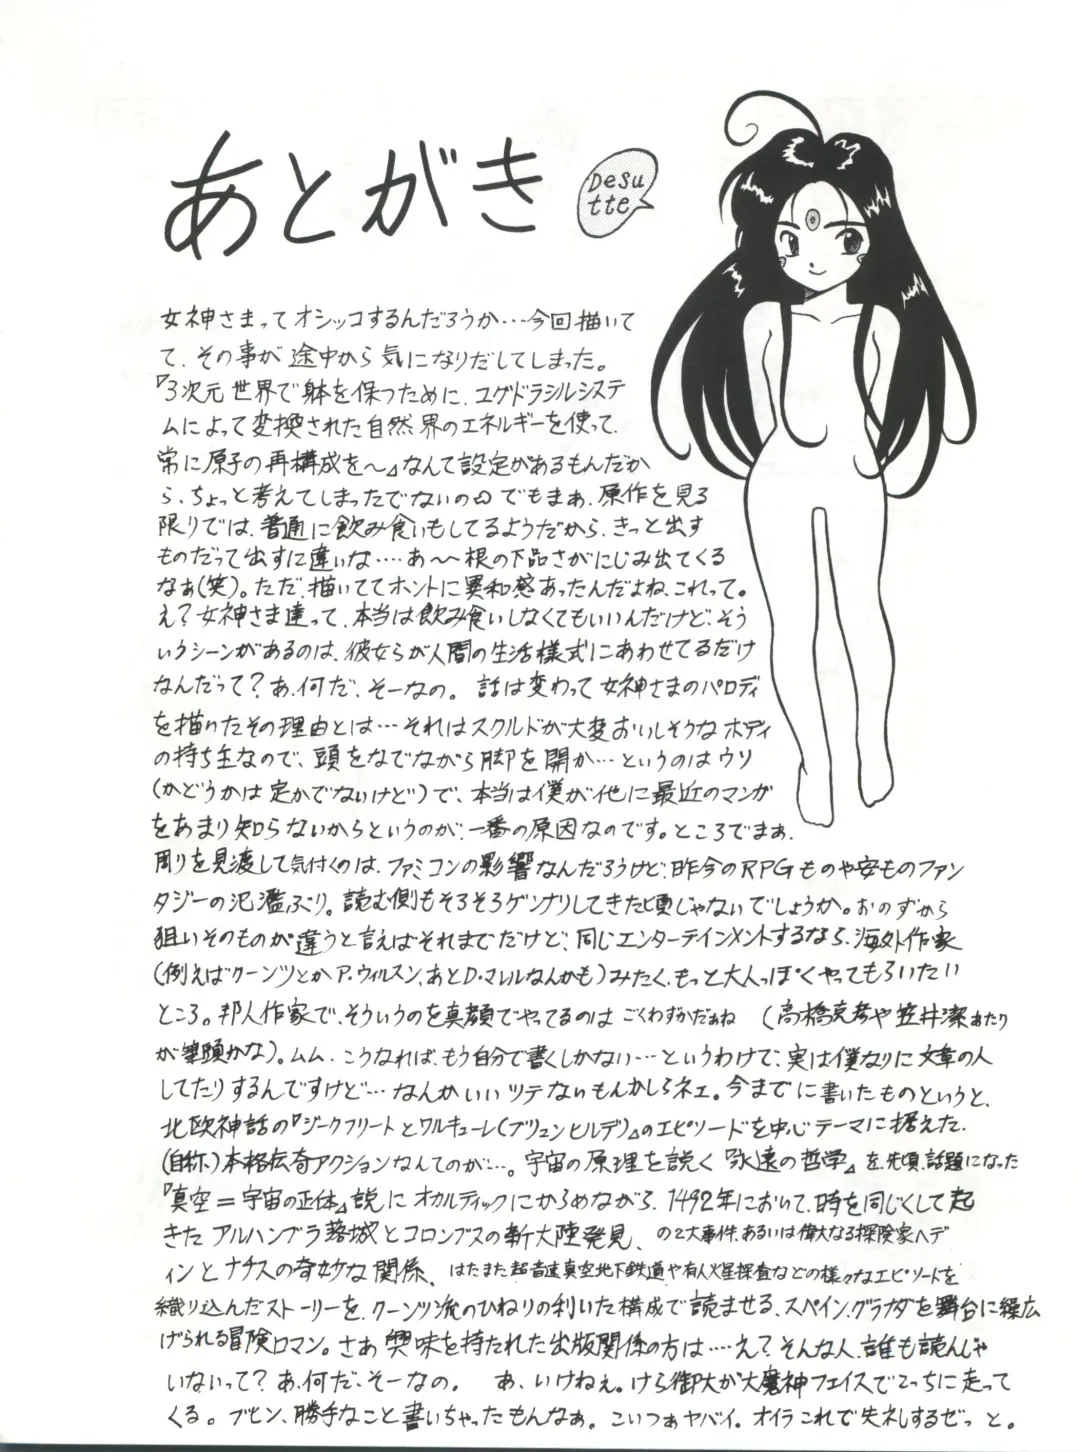 あとがき
Desu
tte
女神さまってオシッコするんだろうか…今回描いて
て、その事が途中から気になりだしてしまった。
『3次元世界で躰を保つために、ユグドラシルシステ
ムによって変換された自然界のエネルギーを使って、
常に原子の再構成を〜』なんて設定があるもんだか
ら、ちょっと考えてしまったでないの。でもまぁ、原作を見る
限りでは、普通に飲み食いもしてるようだから、きっと出す
ものだって出すに違いな‥‥あ〜〜根の下品さがにじみ出てくる
なぁ(笑)。ただ、描いててホントに異和感あったんだよね、これって。
え?女神さま達って、本当は飲み食いしなくてもいいんだけど、そう
いうシーンがあるのは、彼女らが人間の生活様式にあわせてるだけ
なんだって?あ、何だ、そーなの。 話は変わって女神さまのパロディ
を描いたその理由とは…それはスクルドが大変おいしそうなボディ
の持ち主なので、頭をなでながら脚を開か…というのはウソ
(かどうかは定かでないけど)で、本当は僕が他に最近のマンガ
をあまり知らないからというのが、一番の原因なのです。ところでまぁ、
周りを見渡して気付くのは、ファミコンの影響なんだろうけど、昨今のRPGものや安ものファン
タジーの氾濫ぶり。読む側もそろそろゲンナリしてきた頃じゃないでしょうか。おのずから
狙いそのものが違うと言えばそれまでだけど、同じエンターテインメントするなら、海外作家
(例えばクーンツとかP.ウィルスン、あとD.マレルなんかも)みたく、もっと大人っぽくやってもらいたい
ところ。邦人作家で、そういうのを真顔でやってるのはごくわずかだぁね (高橋克彦や笠井潔あたり
が筆頭かな)。ムム、こうなれば、もう自分で書くしかない…というわけで、実は僕なりに文章の人
してたりするんですけど…なんかいいツテないもんかしらネェ。今までに書いたものというと、
北欧神話の『ジークフリートとワルキューレ(ブリュンヒルデ)』のエピソードを中心テーマに据えた、
(自称)本格伝奇アクションなんてのが…。宇宙の原理を説く『永遠の哲学』を、先頃、話題になった
『真空=宇宙の正体』説にオカルティックにからめながら、1492年において、時を同じくして起
きたアルハンブラ落城とコロンブスの新大陸発見、の2大事件、あるいは偉大なる探険家ヘデ
ィンとナチスの奇妙な関係、はたまた超音速真空地下鉄道や有人火星探査などの様々なエピソードを
織り込んだストーリーを、クーンツ流のひねりの利いた構成で読ませる、スペイン、グラナダを舞台に繰広
げられる冒険ロマン。さあ興味を持たれた出版関係の方は‥‥え?そんな人、誰も読んじゃ
いないって?あ、何だ、そーなの。 あ、いけねぇ。けら御大が大魔神フェイスでこっちに走って
くる。ブヒン、勝手なこと書いちゃったもんなぁ。こいつぁヤバイ。オイラこれで失礼するぜっ と。